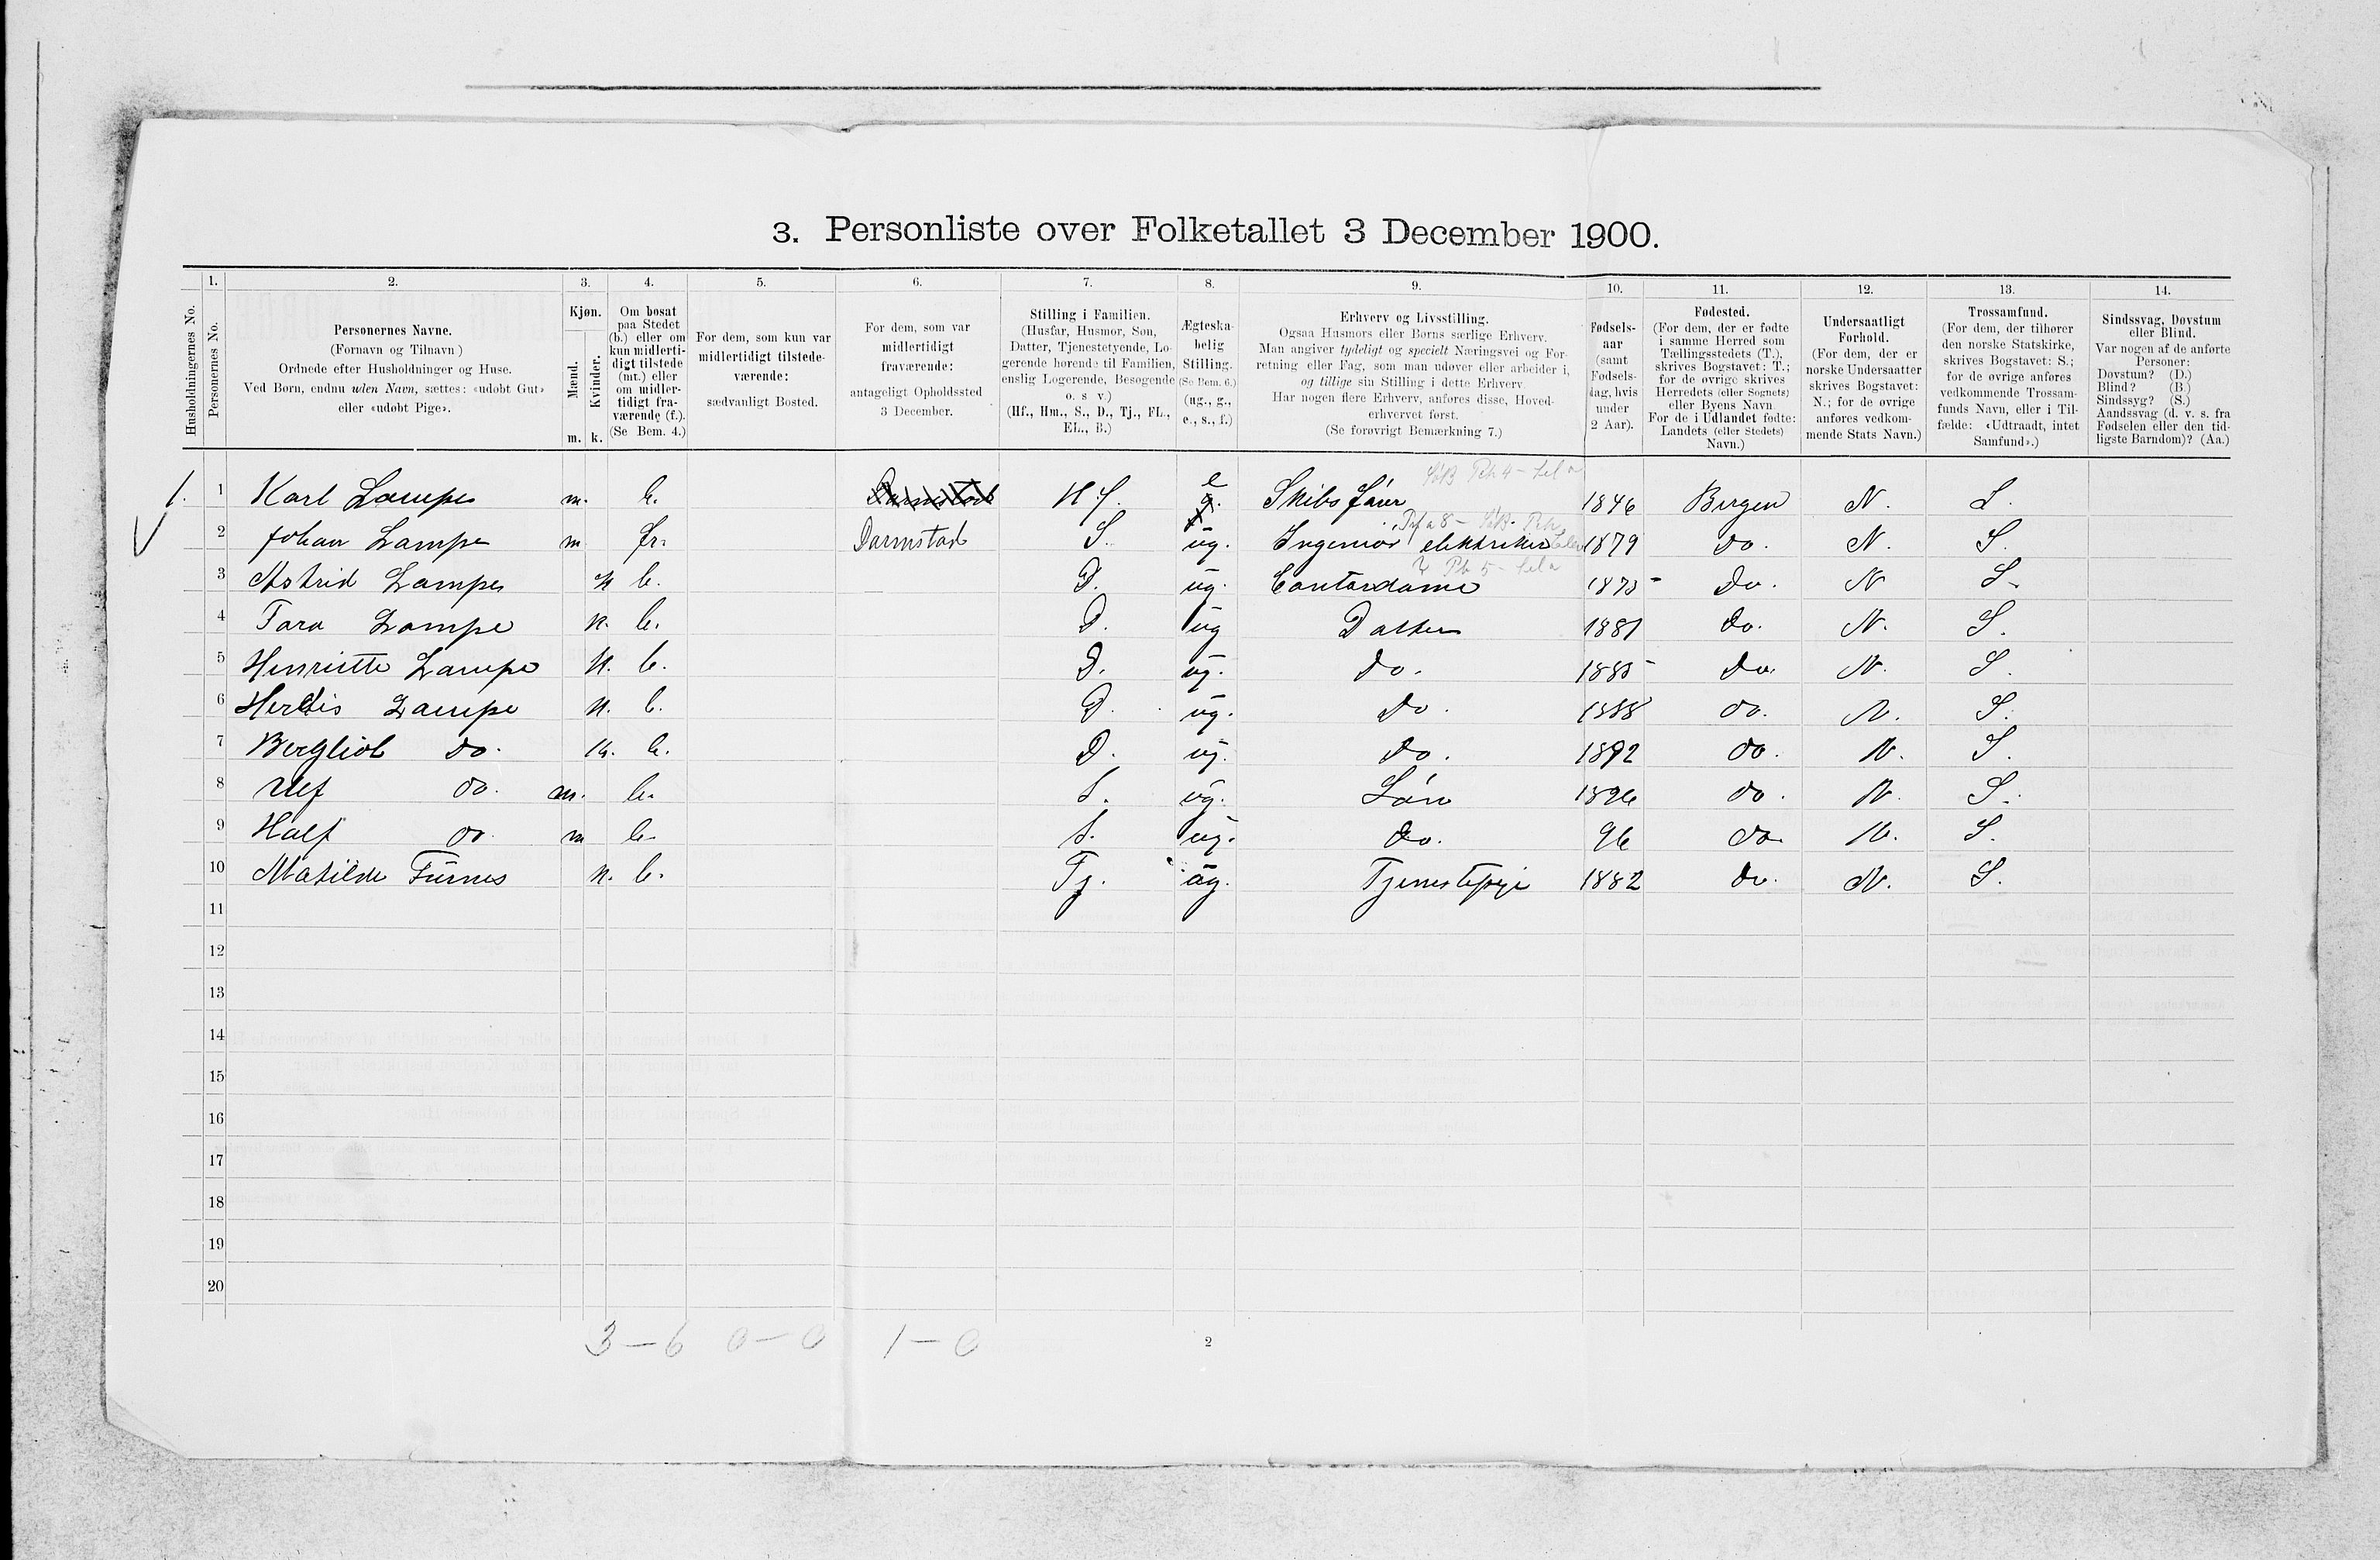 3. Personliste over Folketallet 3 December 1900.
Husholdningernes No.
1. 2. 3. 4. 5. 6. 7. 8. 9. 10. 11. 12. 13. 14.
Personernes No.
Personernes Navne.
(Fornavn og Tilnavn)
Ordnede efter Husholdninger og Huse.
Ved Børn, endnu uden Navn, sættes: «udøbt Gut»
eller «udøbt Pige».
Kjøn.
Mænd.
Kvinder.
m. k.
Om bosat
paa Stedet
(b.) eller om
kun midlerti-
digt tilstede
(mt.) eller
om midler-
tidigt fra-
værende (f.).
(Se Bem. 4.)
For dem, som kun var
midlertidigt tilstede-
værende:
sædvanligt Bosted.
For dem, som var
midlertidigt
fraværende:
antageligt Opholdssted
3 December.
Stilling i Familien.
(Husfar, Husmor, Søn,
Datter, Tjenestetyende, Lo-
gerende hørende til Familien,
enslig Logerende, Besøgende
o. s v.)
(Hf., Hm., S., D., Tj., FL.,
EL., B.)
Ægteska-
belig
Stilling.
(Se Bem. 6.)
(ug., g.,
e., s., f.)
Erhverv og Livsstilling.
Ogsaa Husmors eller Børns særlige Erhverv.
Man angiver tydeligt og specielt Næringsvei og For-
retning eller Fag, som man udøver eller arbeider i,
og tillige sin Stilling i dette Erhverv.
Har nogen flere Erhverv, anføres disse, Hoved-
erhvervet først.
(Se forøvrigt Bemærkning 7.)
Fødsels-
aar
(samt
Fødsels-
dag, hvis
under
2 Aar).
Fødested.
(For dem, der er fødte
i samme Herred som
Tællingsstedets (T.),
skrives Bogstavet: T.;
for de øvrige skrives
Herredets (eller Sognets)
eller Byens Navn.
For de i Udlandet fødte:
Landets (eller Stedets)
Navn.)
Undersaatligt
Forhold.
(For dem, der er
norske Undersaatter
skrives Bogstavet:
N.; for de øvrige
anføres vedkom-
mende Stats Navn.)
Trossamfund.
(For dem, der tilhører
den norske Statskirke,
skrives Bogstavet: S.;
for de øvrige anføres
vedkommende Trossam-
funds Navn, eller i Til-
fælde: «Udtraadt, intet
Samfund».)
Sindssvag, Døvstum
eller Blind.
Var nogen af de anførte
Personer:
Døvstum? (D.)
Blind? (B.)
Sindssyg? (S.)
Aandssvag (d. v. s. fra
Fødselen eller den tid-
ligste Barndom)? (Aa.)
1. 1 Karl Lampe m. b. Darmstad Hf. e g. Skibsfører 1846 Bergen N. S.
2 Johan Lampe m fr. Darmstad S. ug. Ingeniør elektriker 1879 do. N. S.
3 Astrid Lampe k b. D. ug. Contordame 1875 do. N S.
4 Tora Lampe k. b. D. ug Datter 1881 do. N. S.
5 Henriette Lampe k. b. D. ug. do. 1885 do. N. S.
6 Herdis Lampe k. b. D. ug. do. 1888 do. N. S.
7 Bergliot do. k. b. D. ug. do. 1892 do. N. S.
8 Ulf do. m. b. S. ug. Søn 1896 do. N. S.
9 Half do m b. S. ug. do. 96 do. N. S.
10 Matilde Furnes k. b. Tj. ug. Tjenestepige 1882 do. N. S.
11
12
13
14
15
16
17
18
19
20
3 — 6 0 — 0 1 — 0
2